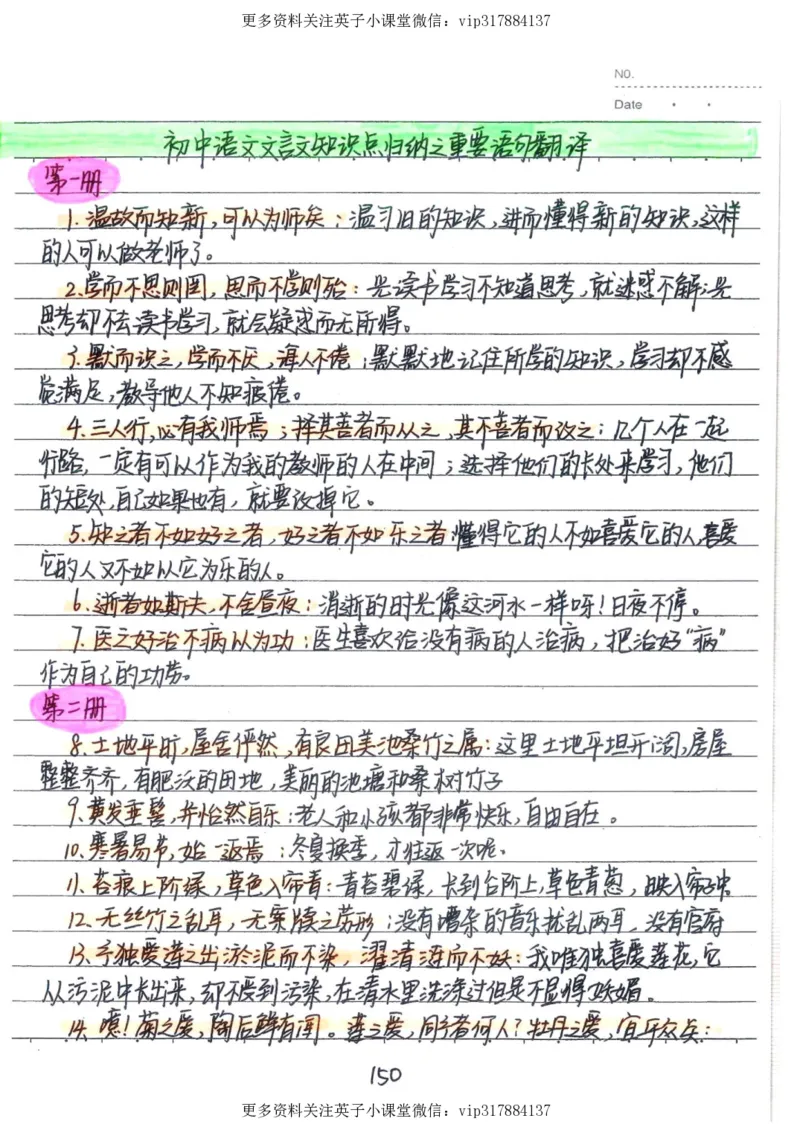 更多资料关注英子小课堂微信：vip317884137
NO.
Date
初中语文文言文知识点归纳之重要语句翻译
第一册
1. 温故而知新，可以为师矣：温习旧的知识，进而懂得新的知识，这样
的人可以做老师了。
2. 学而不思则罔，思而不学则殆：光读书学习不知道思考，就迷惑不解；光
思考却不去读书学习，就会疑惑而无所得。
3. 默而识之，学而不厌，诲人不倦；默默地记住所学的知识，学习却不感
觉满足，教导他人不知疲倦。
4. 三人行，必有我师焉；择其善者而从之，其不善者而改之：几个人在一起
行路，一定有可以作为我的教师的人在中间；选择他们的长处来学习，他们
的短处，自己如果也有，就要改掉它。
5. 知之者不如好之者，好之者不如乐之者懂得它的人不如喜爱它的人，喜爱
它的人又不如以它为乐的人。
6. 逝者如斯夫，不舍昼夜：消逝的时光像这河水一样呀！日夜不停。
7. 医之好治不病以为功：医生喜欢给没有病的人治病，把治好“病”
作为自己的功劳。
第二册
8. 土地平旷，屋舍俨然，有良田美池桑竹之属：这里土地平坦开阔，房屋
整整齐齐，有肥沃的田地，美丽的池塘和桑树竹子
9. 黄发垂髫，并怡然自乐：老人和小孩都非常快乐，自由自在。
10. 寒暑易节，始一返焉：冬夏换季，才往返一次呢。
11. 苔痕上阶绿，草色入帘青：青苔碧绿，长到台阶上，草色青葱，映入帘子中
12. 无丝竹之乱耳，无案牍之劳形：没有嘈杂的音乐扰乱两耳，没有官府
13. 予独爱莲之出淤泥而不染，濯清涟而不妖：我唯独喜爱莲花，它
从污泥中长出来，却不受到污染，在清水里洗涤过但是不显得妖媚。
14. 噫！菊之爱，陶后鲜有闻。莲之爱，同予者何人？牡丹之爱，宜乎众矣：
150
更多资料关注英子小课堂微信：vip317884137